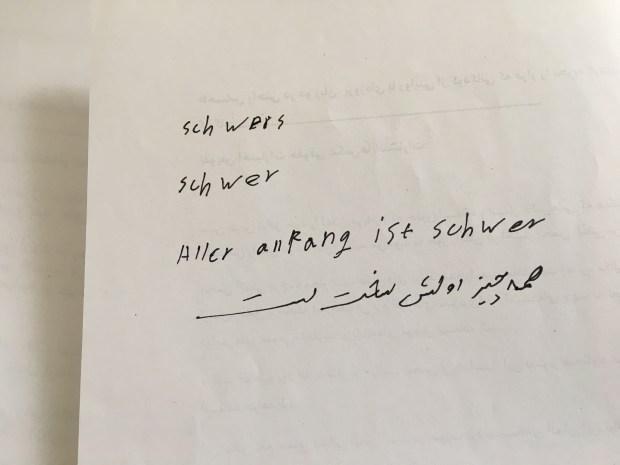 schwers
schwer
Aller anfang ist schwer
همه چیز اولش سخت است